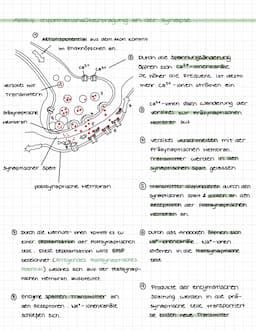 Ablauf Informationsübertragung an der Synapse
① Aktionspotential aus dem Axon kommt
im Endknöpfchen an.
② Durch die Spannungsänderung
öffnen sich Ca²⁺-Ionenkanäle
Je höher die Frequenz, um desto
mehr Ca²⁺-Ionen strömen ein.
Ca²⁺
Ca²⁺
Vesikel mit
Transmittern
③ Ca²⁺-Ionen lösen Wanderung der
Vesikel zur Präsynaptischen
Membran aus
präsynaptische
Membran
④ Vesikel verschmelzen mit der
Präsynaptischen Membran.
Transmitter werden in den
synaptischen Spalt gelassen
synaptischer Spalt
postsynaptische Membran
⑤ Transmitter diffundieren durch den
synaptischen Spalt &
Rezeptoren der Postsynaptischen
Membran an.
⑥ Durch die Na⁺-Ionen kommt es zu
einer Depolarisation der Postsynaptischen
Zelle. Diese Depolarisation wird EPSP
bezeichnet (Erregendes Postsynaptisches
Potential) welches sich auf der Postsynap-
tischen Membran ausbreitet.
⑦ Durch das Andocken öffnen sich
Na⁺-Ionenkanäle. Na⁺-Ionen
strömen in die Postsynaptische
Zelle.
⑧ Enzyme spalten Transmitter an
den Rezeptoren. Na⁺-Ionenkanäle
schließen sich.
⑨ Produkte der enzymatischen
Spaltung werden in die prä-
synaptische Zelle transportiert
& bilden neue Transmitter